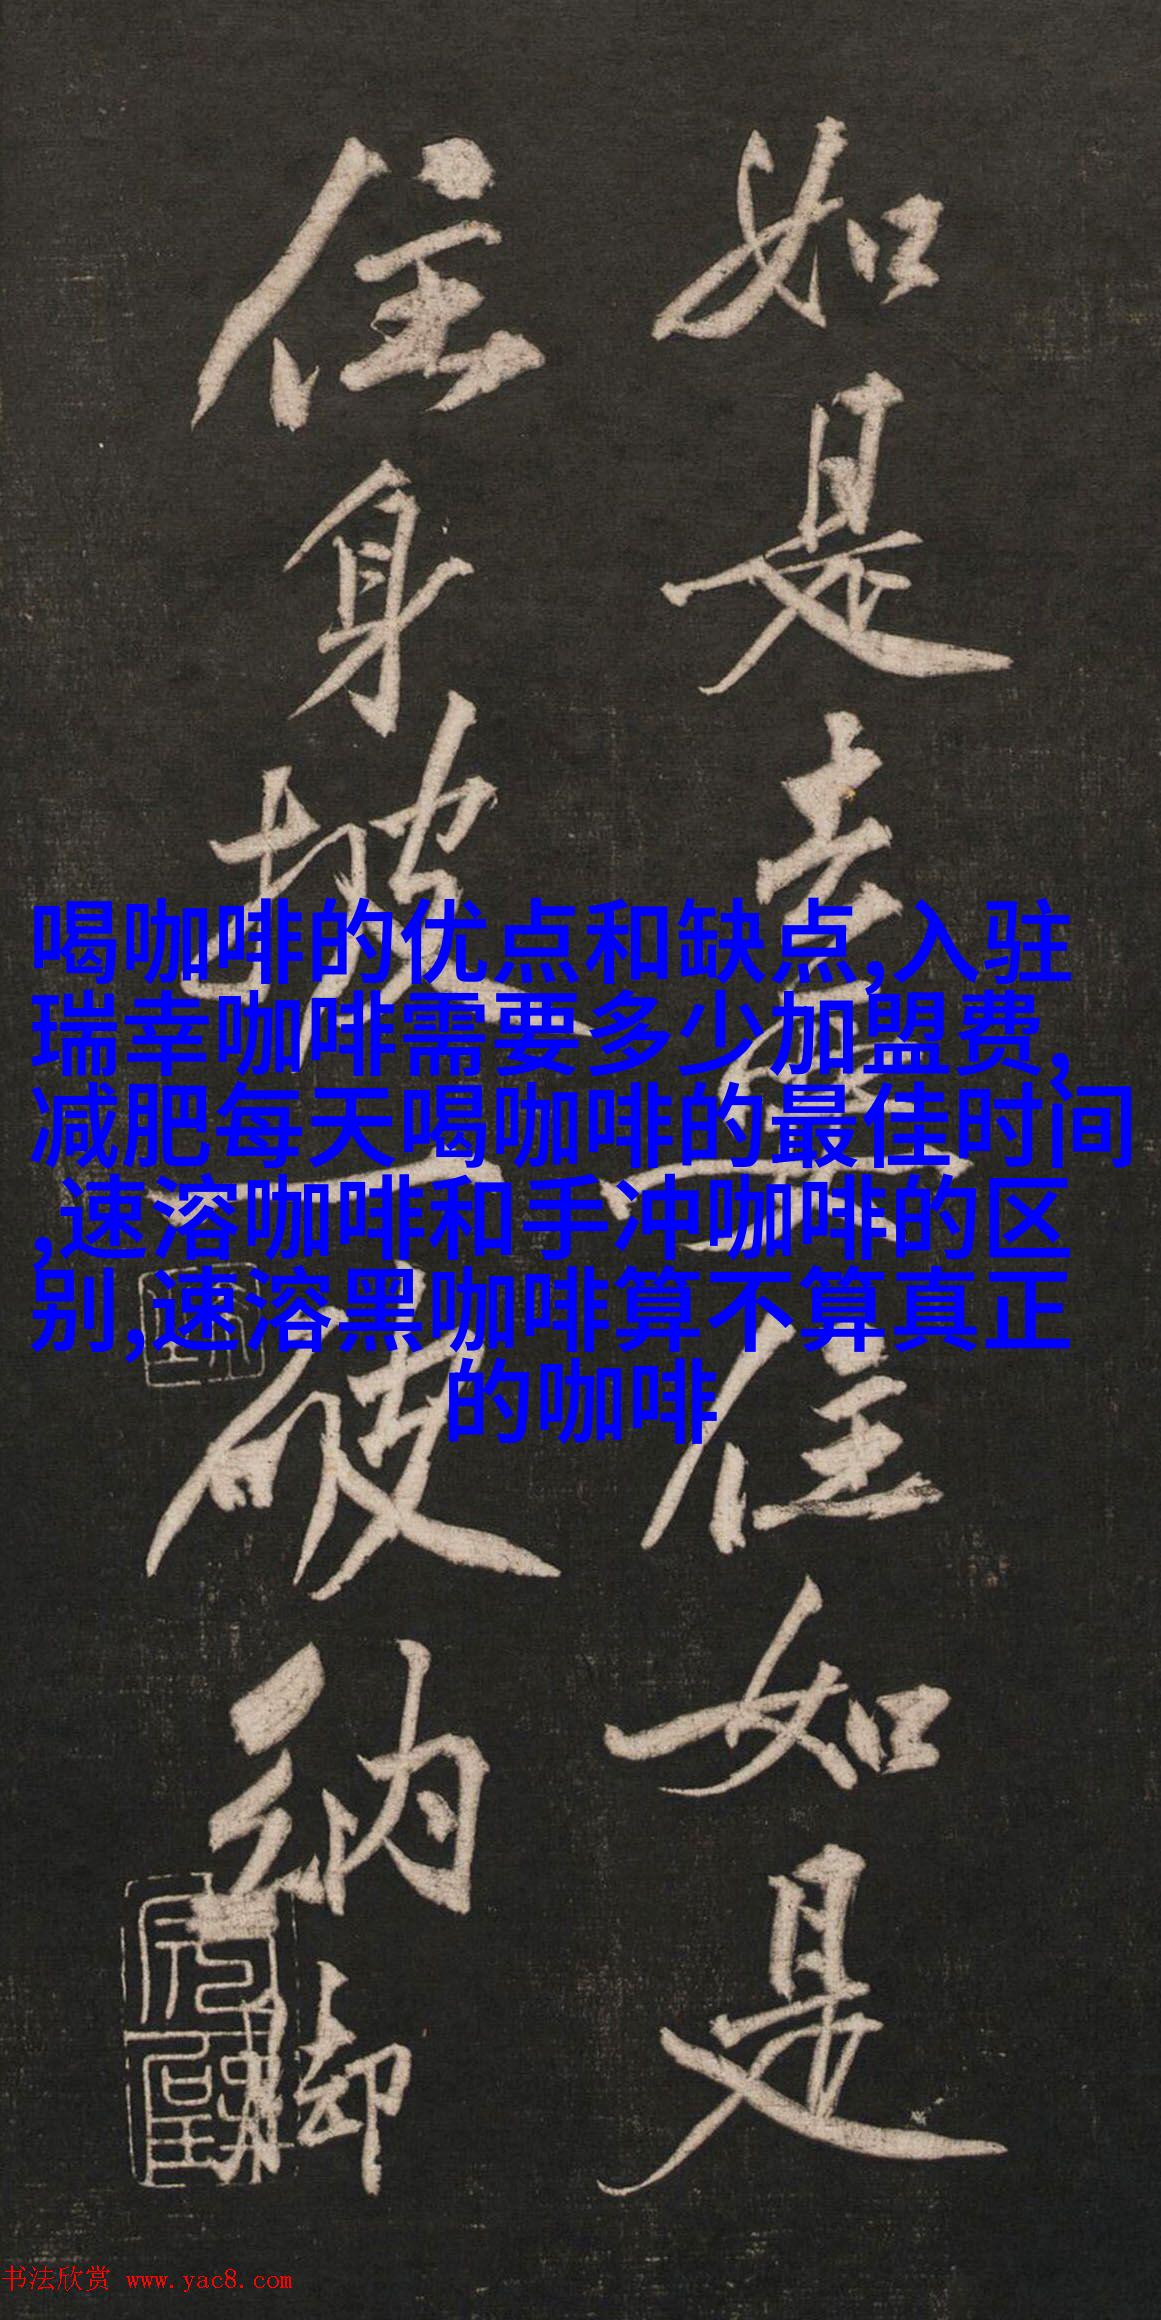 如是去住如是
住身披一破納脚
喝咖啡的优点和缺点,入驻
瑞幸咖啡需要多少加盟费,
减肥每天喝咖啡的最佳时间
,速溶咖啡和手冲咖啡的区
别,速溶黑咖啡算不算真正
的咖啡
书法欣赏 www.yac8.com